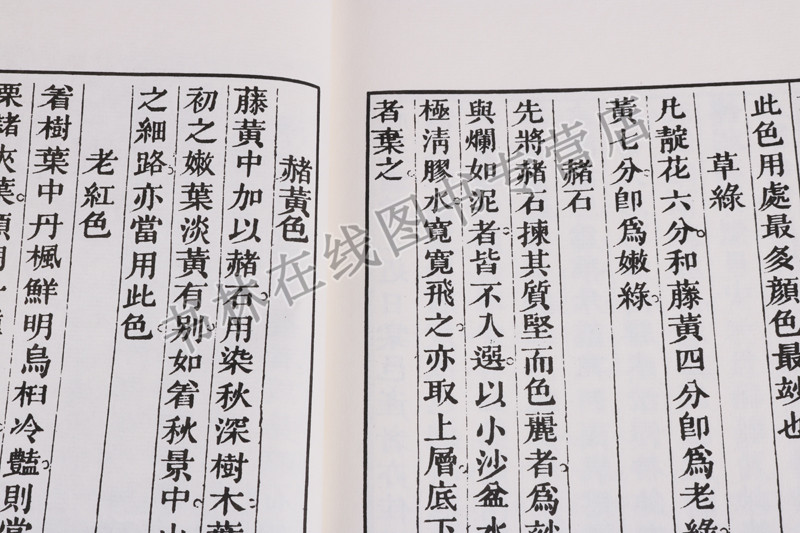 此色用處最多顏色最玅也
草綠
凡靛花六分和藤黃四分卽爲老綠
黃七分卽爲嫩綠
赭石
先將赭石揀其質堅而色麗者爲玅
與爛如泥者皆不入選以小沙盆水
極淸膠水寬寬飛之亦取上層底下
者棄之
赭黃色
藤黃中加以赭石用染秋深樹木葉
初之嫩葉淡黃有别如着秋景中山
之細路亦當用此色
老紅色
着樹葉中丹楓鮮明烏桕冷豔則當
栗諸夾葉
书林在线图书专营店